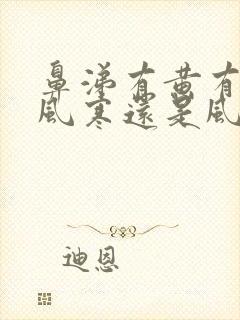 鼻涕有黄有
风寒还是风
迪恩